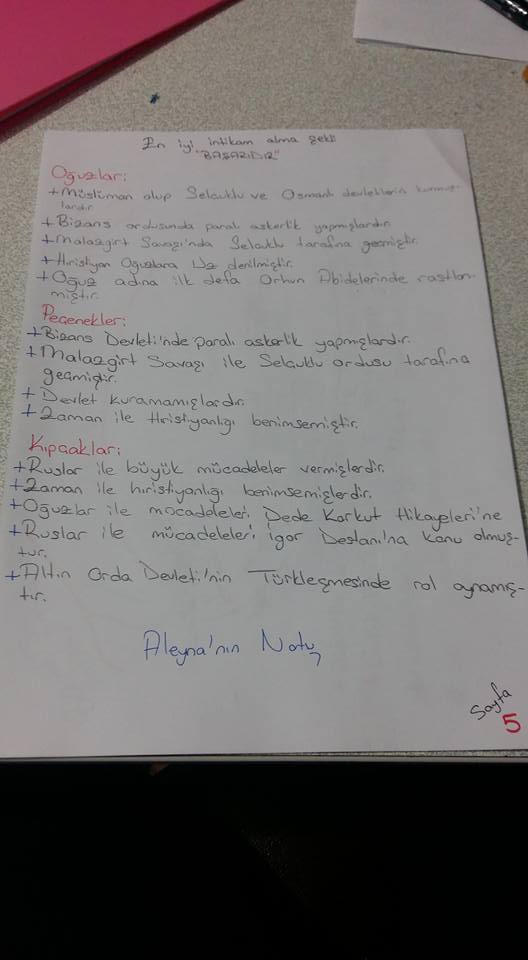 En iyi intikam alma şekli
"BAŞARIDIR"
Oğuzlar:
+Müslüman olup Selçuklu ve Osmanlı devletlerin kurmuş-
lardır.
+Bizans ordusunda paralı askerlik yapmışlardır.
+Malazgirt Savaşı'nda Selçuklu tarafına geçmiştir.
+Hristiyan Oğuzlara Uz denilmiştir.
+Oğuz adına ilk defa Orhun Abidelerinde rastlan-
mıştır.
Peçenekler:
+Bizans Devleti'nde paralı askerlik yapmışlardır.
+Malazgirt Savaşı ile Selçuklu ordusu tarafına
geçmiştir.
+Devlet kuramamışlardır.
+Zaman ile Hristiyanlığı benimsemiştir.
Kıpçaklar:
+Ruslar ile büyük mücadeleler vermişlerdir.
+Zaman ile hıristiyanlığı benimsemişlerdir.
+Oğuzlar ile mücadeleleri Dede Korkut Hikayeleri'ne
+Ruslar ile mücadeleleri İgor Destanı'na konu olmuş-
tur.
+Altın Orda Devleti'nin Türkleşmesinde rol oynamış-
tır.
Aleyna'nın Notu
Sayfa
5